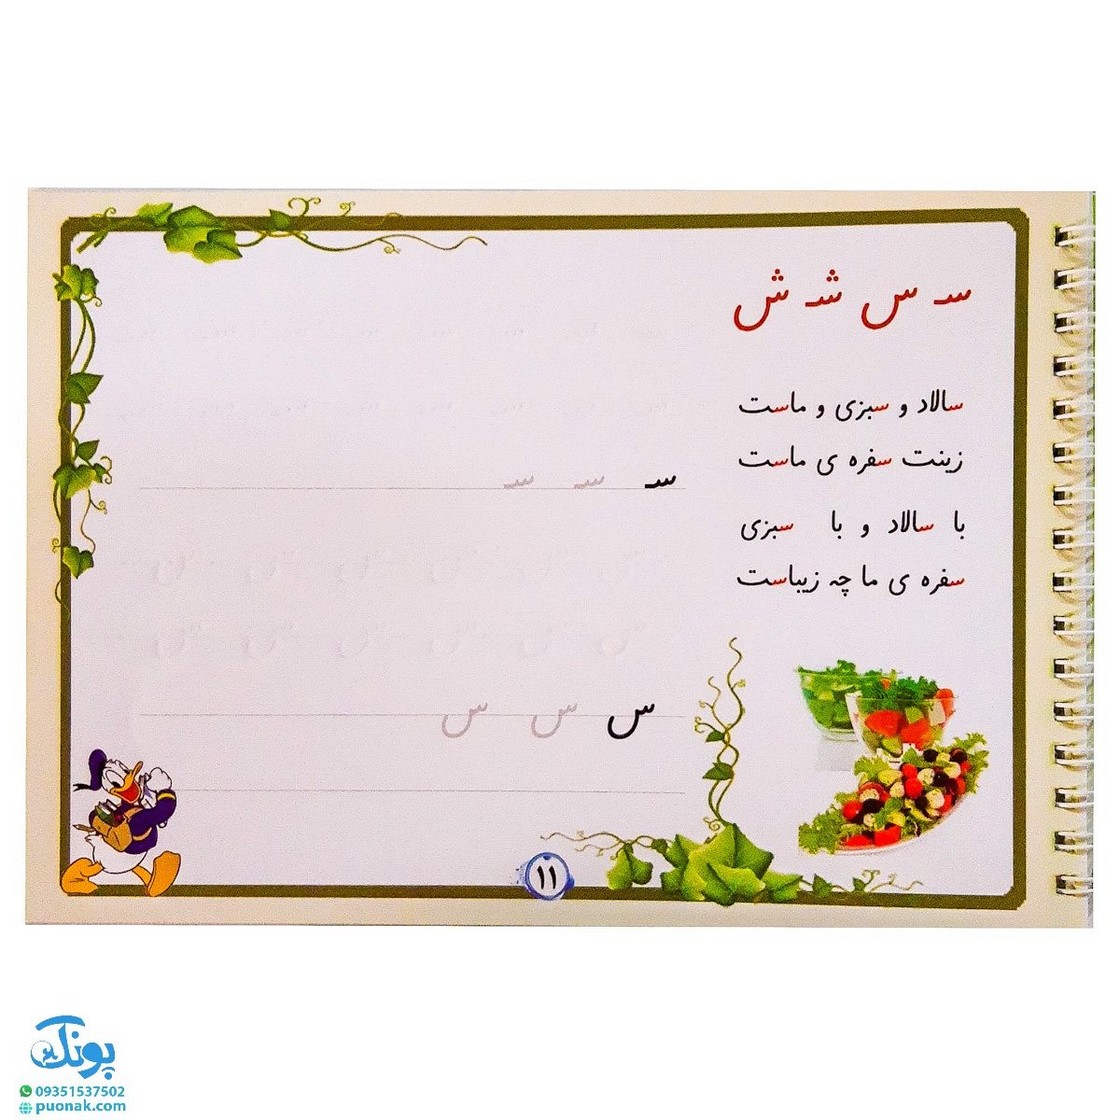 سـ س شـ ش
سالاد و سبزی و ماست
زینت سفره ی ماست
با سالاد و با سبزی
سفره ی ما چه زیباست
سـ سـ سـ
س س س
۱۱
پونک
09351537502
puonak.com